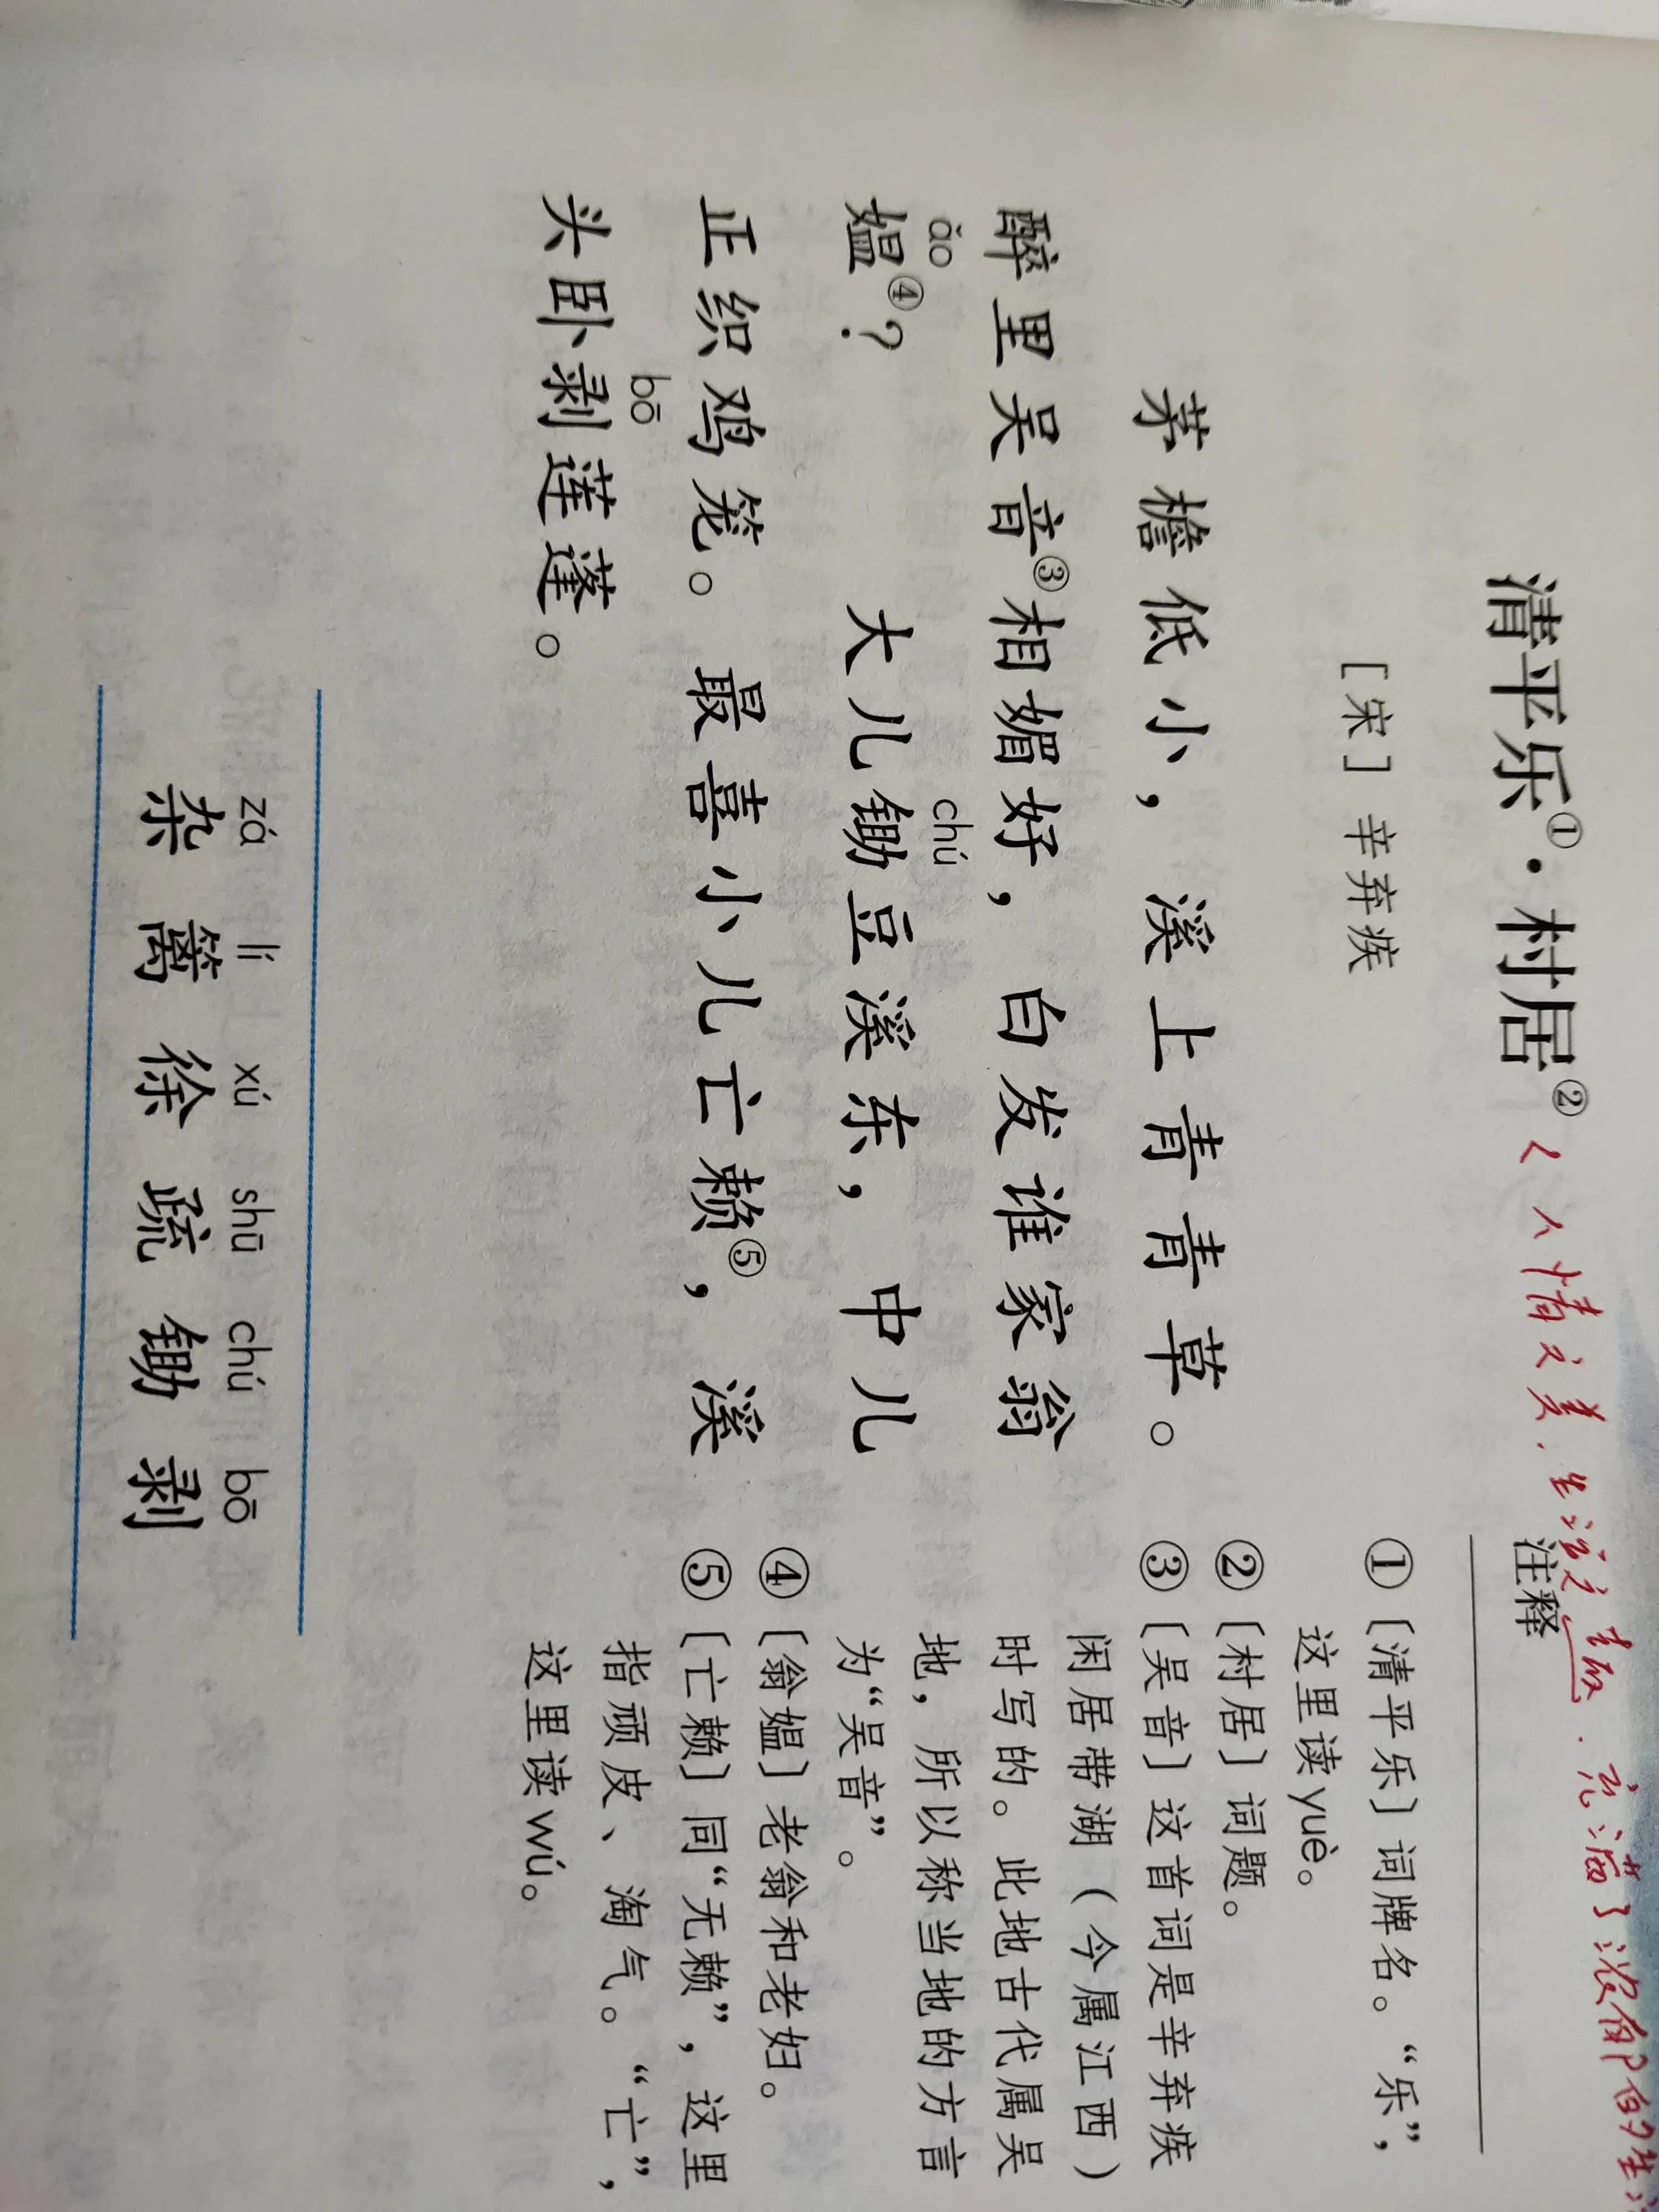 清平乐①·村居②
人情之美.生活之趣.充满了浓郁的生活
[宋] 辛弃疾
茅檐低小，溪上青青草。
醉里吴音③相媚好，白发谁家翁
ǎo
媪④？
chú
大儿锄豆溪东，中儿
正织鸡笼。最喜小儿亡赖⑤，溪
bō
头卧剥莲蓬。
注释
①〔清平乐〕词牌名。“乐”，
这里读yuè。
②〔村居〕词题。
③〔吴音〕这首词是辛弃疾
闲居带湖（今属江西）
时写的。此地古代属吴
地，所以称当地的方言
为“吴音”。
④〔翁媪〕老翁和老妇。
⑤〔亡赖〕同“无赖”，这里
指顽皮、淘气。“亡”，
这里读wú。
zá lí xú shū chú bō
杂 篱 徐 疏 锄 剥